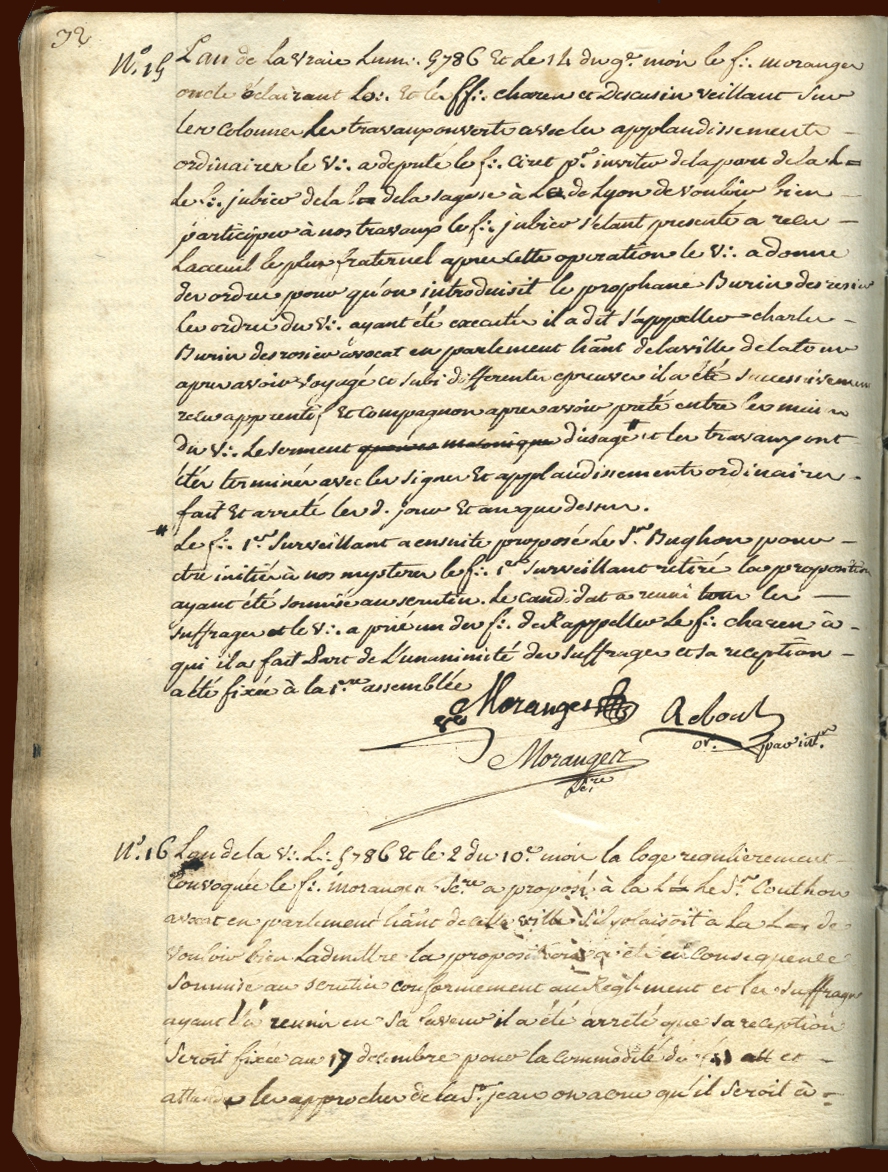 32
N.º 15 L'an de la vraie Lum∴ 5786 et Le 14 du 9.e mois le f∴ moranges
oncle éclairant Lo∴ Et les ff∴ charen et Descusin veillant Sur
les colonnes Les travaux ouverts avec les applaudissements —
ordinaires le V∴ a deputé le f∴ Ciret pr. inviter de la part de la L=
Le f∴ jubier de la L= de la sagesse à L'O de Lyon de vouloir bien —
participer à nos travaux le f∴ jubier s'etant presenté a recu —
Laceuil le plus fraternel apres cette operation le V∴ a donné
des ordres pour qu'on introduisit le prophane Burin desrosiers
les ordres du V∴ ayant été executés il a dit s'appeller charles —
Burin desrosiers avocat en parlement hãnt de la ville de latour
apres avoir voyagé et subi differentes epreuves il a été Successivemen
recu apprentif et Compagnon apres avoir preté entre les mains
du V∴ Le serment d'usage # et les travaux ont
étés terminés avec les signes Et applaudissements ordinaires.
fait Et arreté les d. jour et an que dessus.
# Le f∴ 1.er Surveillant a ensuite proposé Le Sr. Bughon pour —
etre initié à nos mysteres le f∴ 1.er Surveillant retiré la proposition
ayant été soumise au scrutin. Le candidat a reuni tous les —
suffrages et le V∴ a prié un des f∴ de Rappeller Le f∴ charen à -
qui il a fait Part de L'unanimité des suffrages et sa reception —
a été fixée à la 1.ere assemblée
Moranges Reboul
or. par int.
Moranges
Secre
N.º 16 L'an de la V∴ L∴ 5786 Et le 2 du 10.e mois la loge regulierement
Convoquée le f∴ moranges Secre a proposé à la L= Le Sr. Couthon
avocat en parlement hãnt de cette ville S'il plaisoit a la L= de
vouloir bien Ladmettre la proposition a été en Consequence
Soumise au scrutin conformement au Reglement et les Suffrages
ayant été reunis en Sa faveur il a été arrété que sa reception
Seroit fixée au 17 desembre pour la commodité du et —
attendu les approches de la St. jean on a cru qu'il Seroit à =